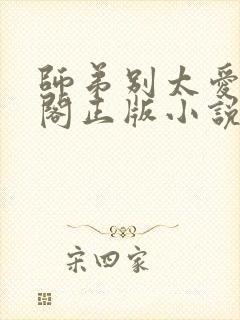 師弟別太愛
閣正版小說
宋四家